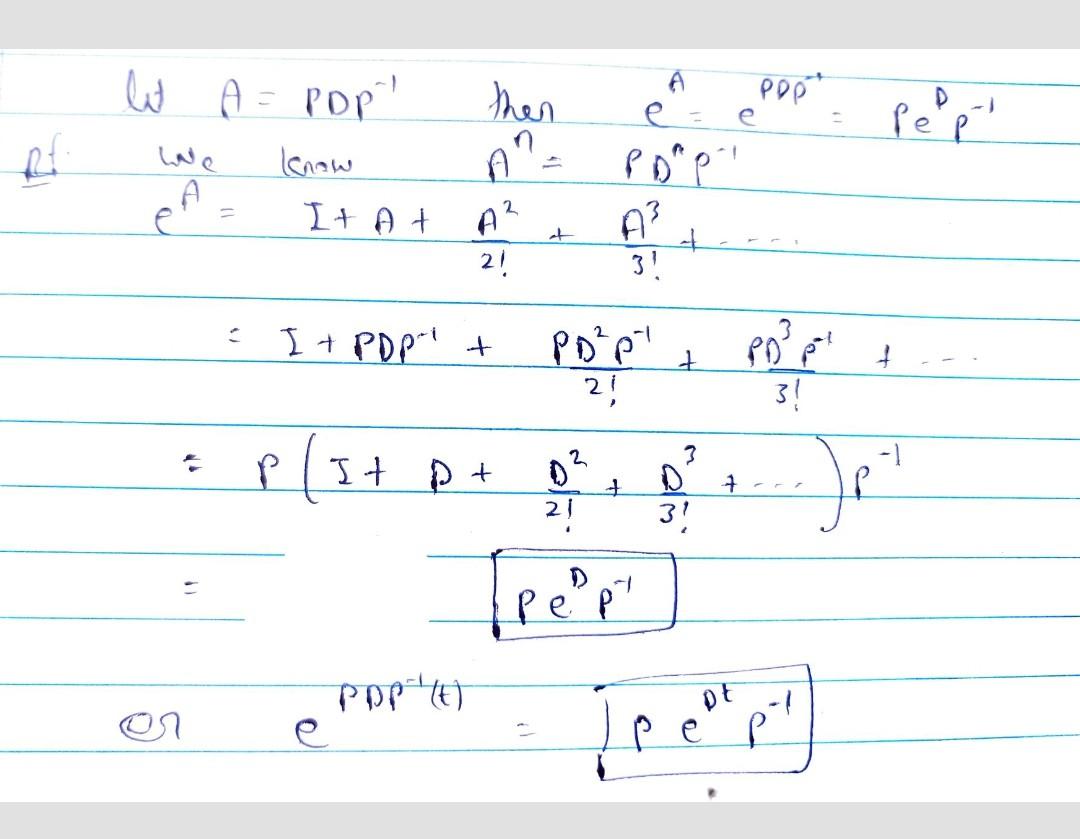 let A = PDP⁻¹ then e^A = e^{PDP⁻¹} = Pe^D P⁻¹
Pf. We know A^n = PD^n P⁻¹
e^A = I + A + A²/2! + A³/3! + ....
= I + PDP⁻¹ + PD²P⁻¹/2! + PD³P⁻¹/3! + ....
= P(I + D + D²/2! + D³/3! + ....)P⁻¹
= Pe^D P⁻¹
or e^{PDP⁻¹(t)} = Pe^{Dt} P⁻¹